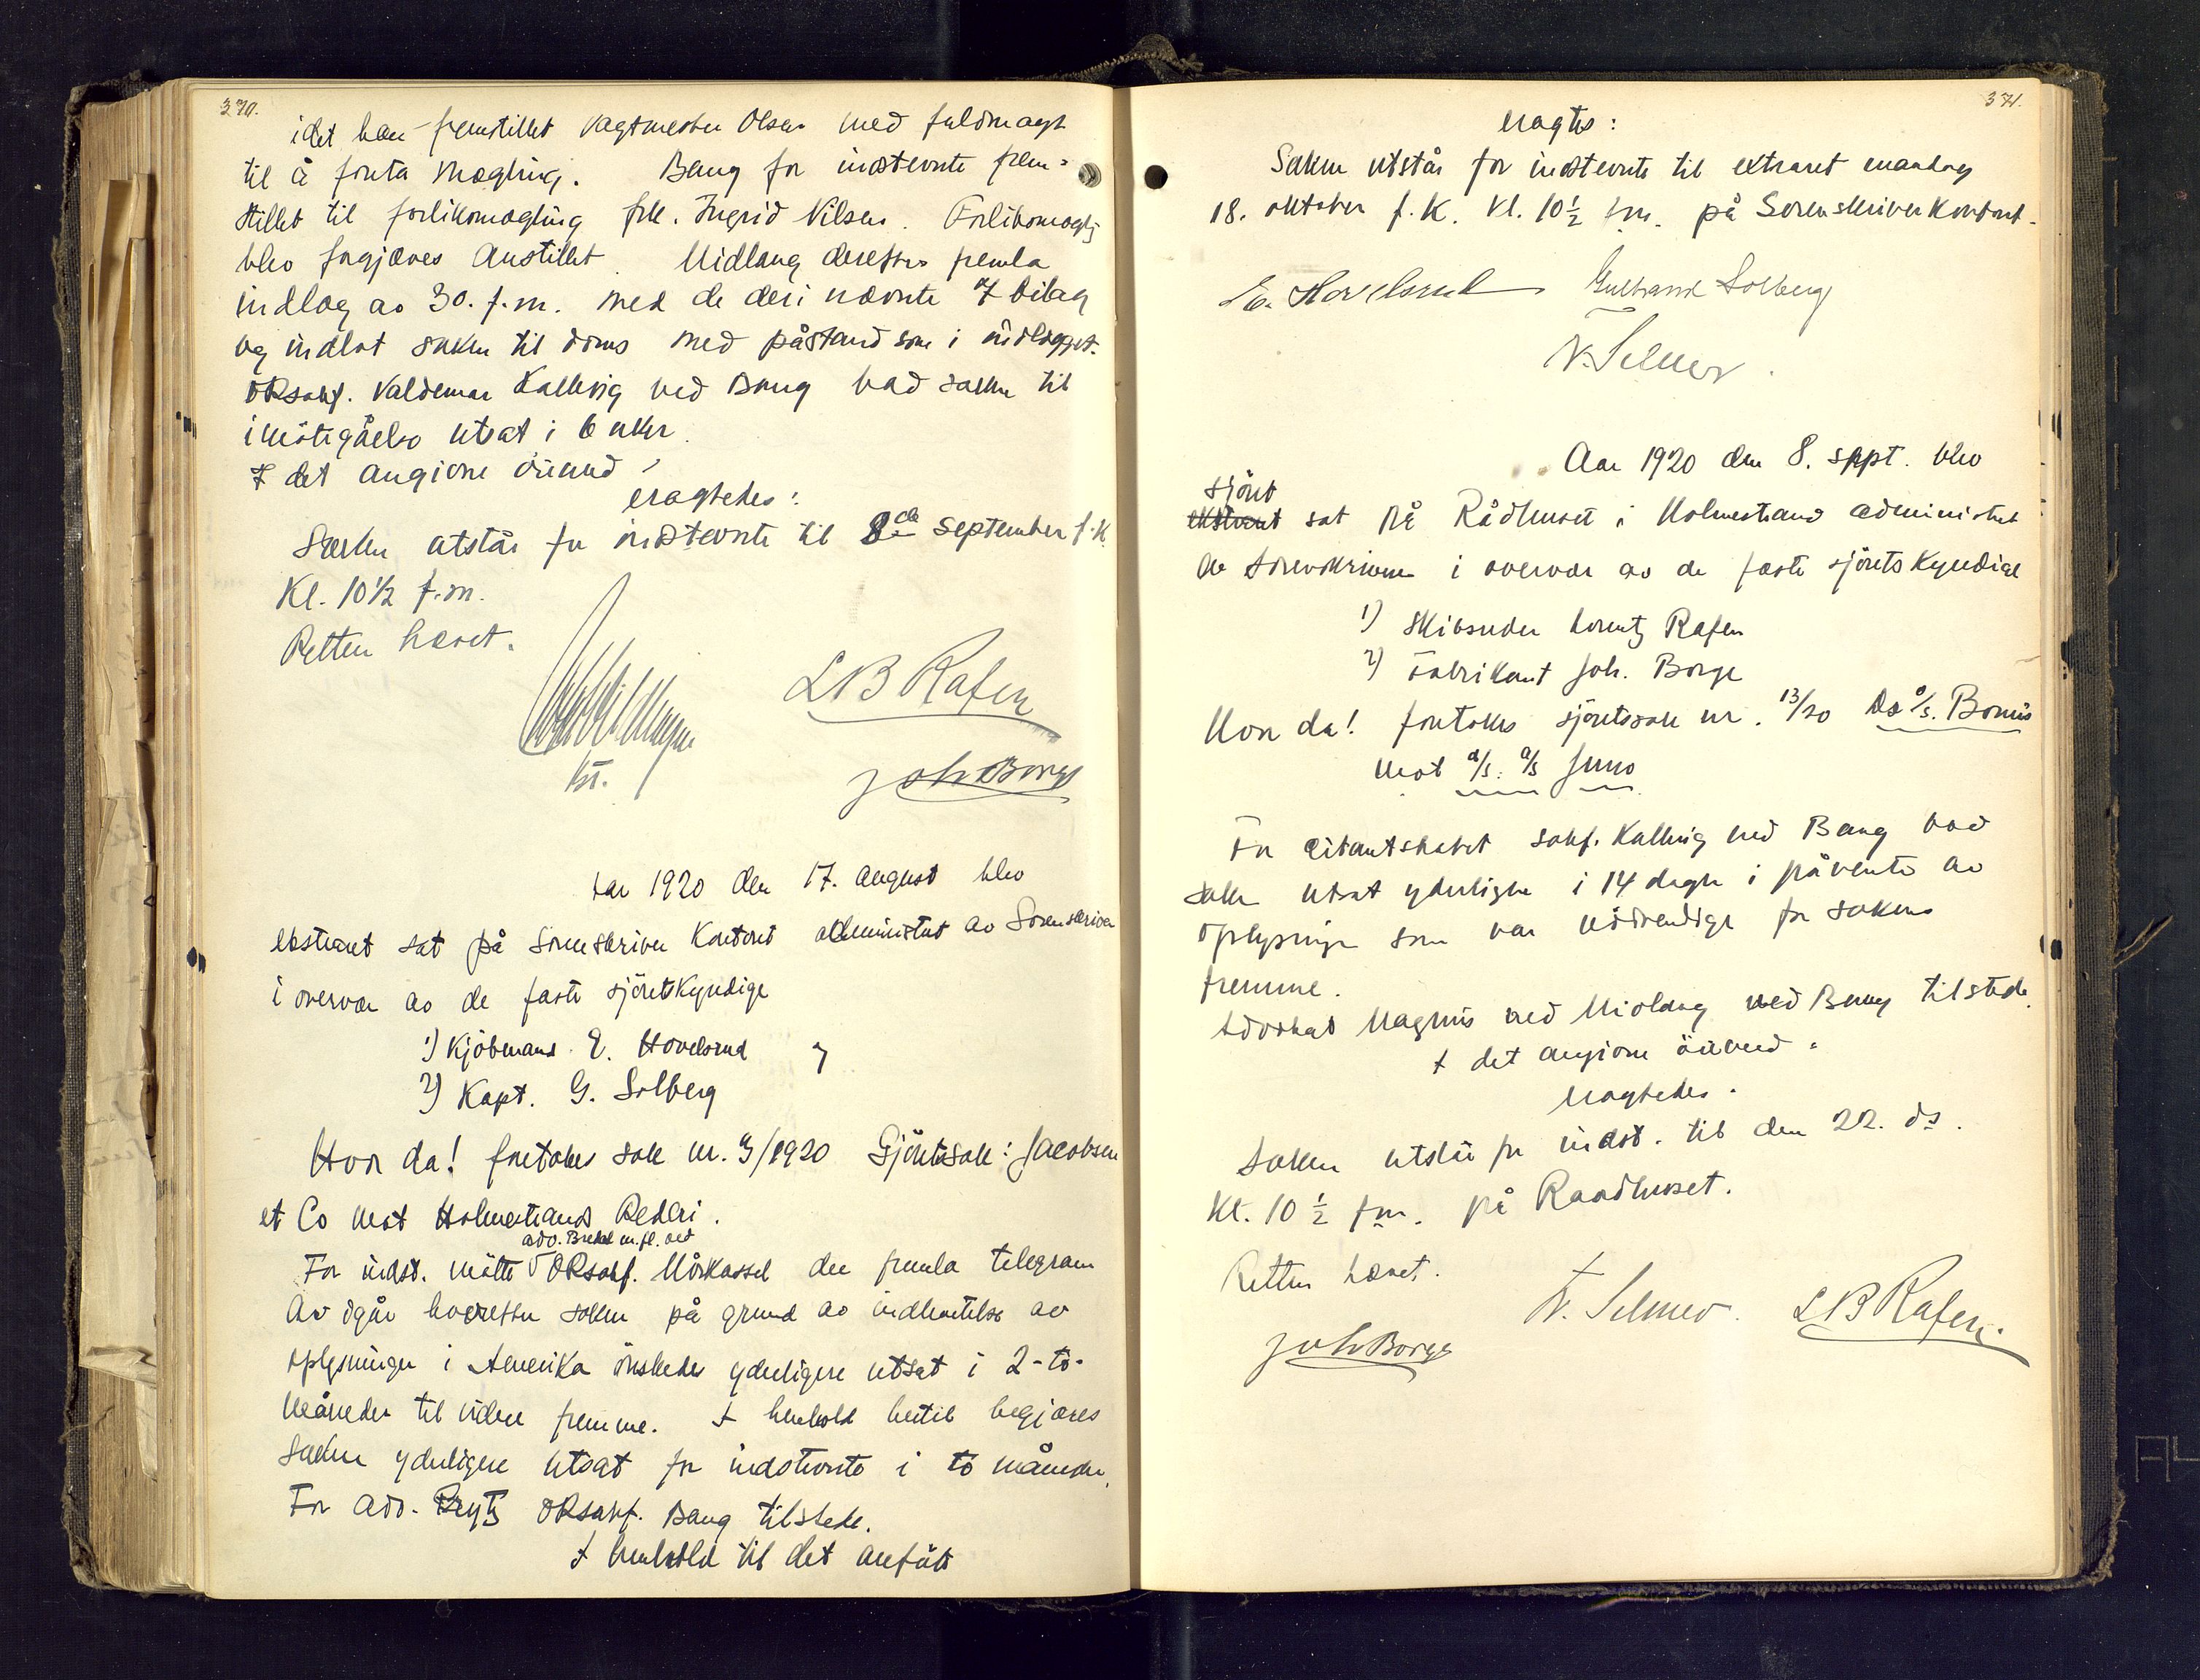 370.
idet han fremstillet vagtmester Olsen med fuldmagt
til å foreta mægling. Bang for indstevnte frem-
stillet til forliksmægling frk. Ingrid Nilsen. Forliksmægling
blev forgjæves anstillet. Midlang derefter fremla
indlæg av 30. f.m. med de deri nævnte 7 bilag
og indlot saken til doms med påstand som i indlægget.
ORsakf. Valdemar Kallevig ved Bang bad saken til
imøtegåelse utsat i 6 uker.
I det angivne øiemed
eragtedes:
Saken utstår for indstevnte til 8de september f.k.
Kl. 10½ f.m.
Retten hævet.
LB Rafen
kst.
Joh Borge
Aar 1920 den 17. august blev
ekstraret sat på Sorenskriver Kontoret administrert av Sorenskriver
i overvær av de faste sjøretskyndige
1) Kjøbmand E. Hovelsrud
2) Kapt. G. Solberg
Hvor da! foretokes sak nr. 9/1920 Sjøretssak: Jacobsen
et Co mot Holmestrands Rederi.
adv. Bredal m.fl. ved
For indst. møtte ORsakf. Mørkassel der fremla telegram
av igår hvorefter saken på grund av indhentelse av
oplysninger i Amerika ønskedes yderligere utsat i 2-to-
måneder til videre fremme. I henhold hertil begjæres
saken yderligere utsat for indstevnte i to måneder.
For adv. Reytz ORsakf. Bang tilstede.
I henhold til det anførte
371.
eragtes:
Saken utstår for indstevnte til extraret mandag
18. oktober f.k. kl. 10½ fm. på Sorenskriverkontoret.
E. Hovelsrud Gulbrand Solberg
N. Selmer.
Aar 1920 den 8. sept. blev
sjøret
ekstraret sat på Rådhuset i Holmestrand administrert
av Sorenskriveren i overvær av de faste sjøretskyndige
1) Skibsreder Lorentz Rafen
2) Fabrikant Joh. Borge
Hvor da! foretokes sjøretssak nr. 13/20 Ds a/s. Bonus
mot a/s. a/s Juno
For citantskabet sakf. Kallevig ved Bang bad
saken utsat yderligere i 14 dager i påvente av
oplysninger som var nødvendige for sakens
fremme.
Advokat Magnus ved Midlang ved Bang tilstede.
I det angivne øiemed
eragtedes.
Saken utstår for indst. til den 22. ds.
Kl. 10½ fm. på Raadhuset.
Retten hævet.
N. Selmer. LB Rafen.
Joh Borge